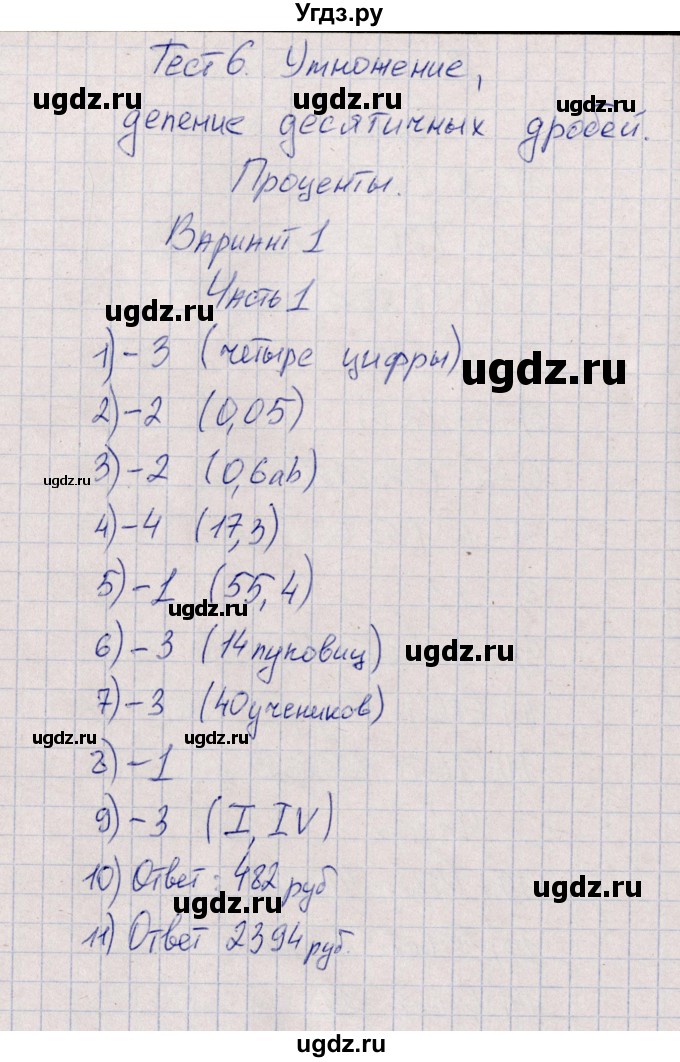 Угдз.ру
Тест 6. Умножение,
деление десятичных дробей.
Проценты.
Вариант 1
Часть 1
1) - 3 (четыре цифры)
2) - 2 (0,05)
3) - 2 (0,6ab)
4) - 4 (17,3)
5) - 1 (55,4)
6) - 3 (14 пуговиц)
7) - 3 (40 учеников)
8) - 1
9) - 3 (I, IV)
10) Ответ: 482 руб
11) Ответ 2394 руб.
ugdz.ru
ugdz.ru
ugdz.ru
ugdz.ru
ugdz.ru
ugdz.ru
ugdz.ru
ugdz.ru
ugdz.ru
ugdz.ru
ugdz.ru
ugdz.ru
ugdz.ru
ugdz.ru